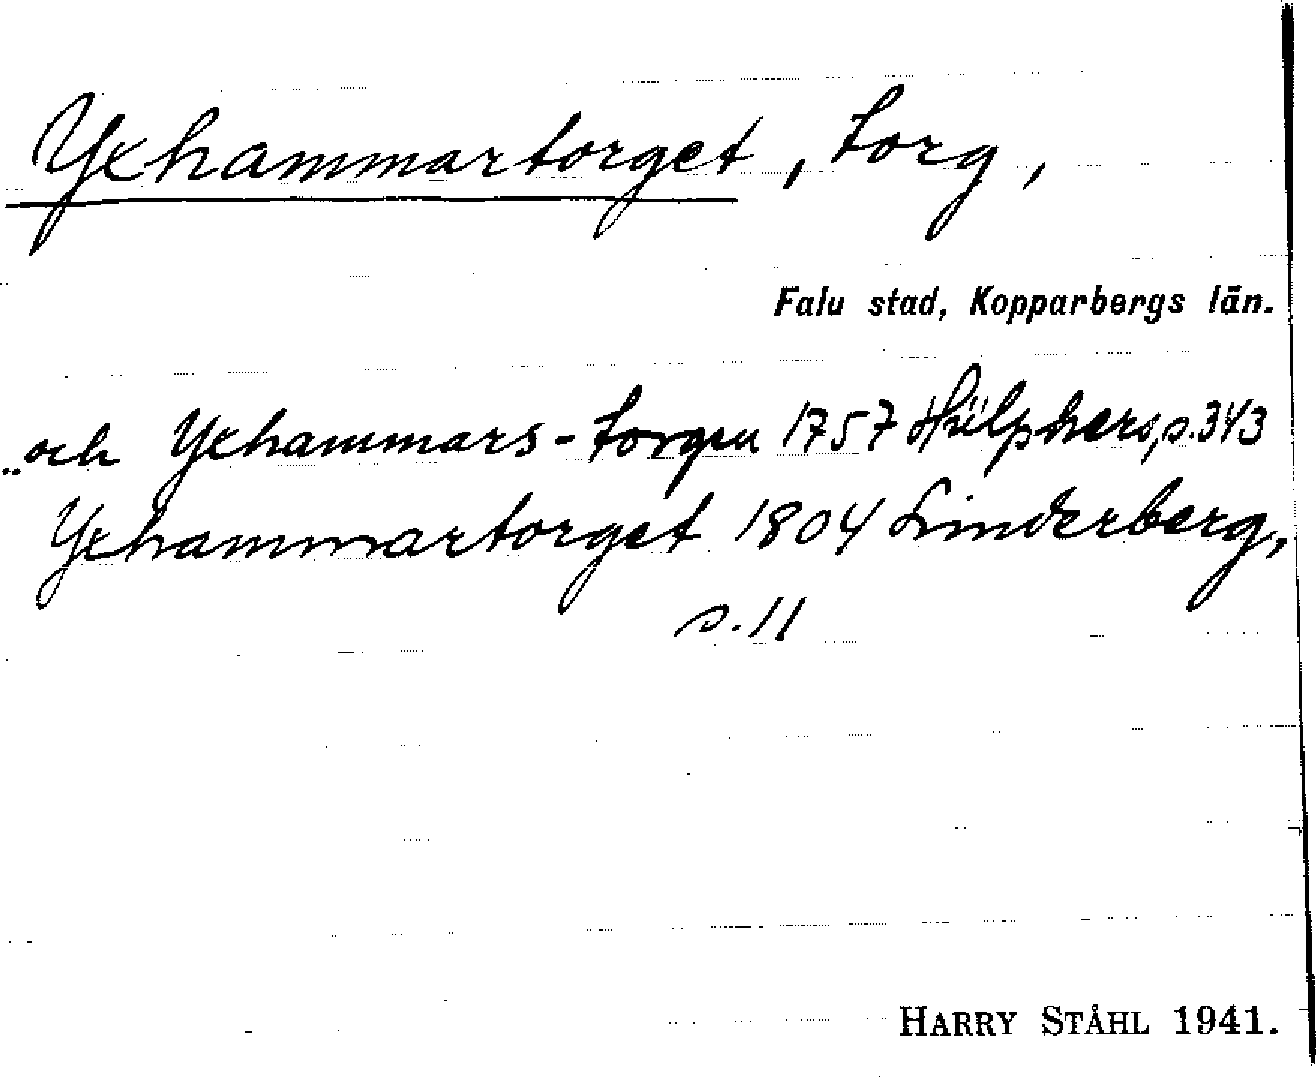 Yxhammartorget, torg,
Falu stad, Kopparbergs län.
.. och Yxhammars-torgen 1757 Hülphers, s. 343
Yxhammartorget 1804 Linderberg,
s. 11
HARRY STÅHL 1941.